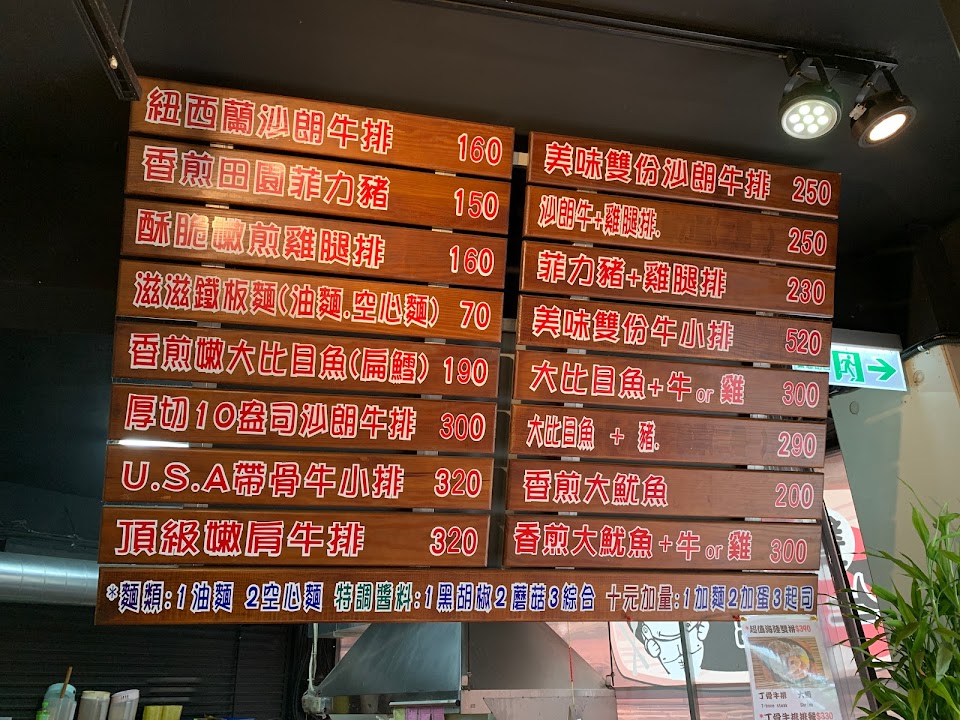 紐西蘭沙朗牛排 160
香煎田園菲力豬 150
酥脆嫩煎雞腿排 160
滋滋鐵板麵(油麵.空心麵) 70
香煎嫩大比目魚(扁鱈) 190
厚切10盎司沙朗牛排 300
U.S.A帶骨牛小排 320
頂級嫩肩牛排 320
美味雙份沙朗牛排 250
沙朗牛+雞腿排. 250
菲力豬+雞腿排 230
美味雙份牛小排 520
大比目魚+牛or雞 300
大比目魚 + 豬. 290
香煎大魷魚 200
香煎大魷魚+牛or雞 300
*麵類:1油麵 2空心麵 特調醬料:1黑胡椒2蘑菇3綜合 十元加量:1加麵2加蛋3起司
*超值海陸雙拼$390
丁骨牛排
T-bone steak
*丁骨牛排排餐$330